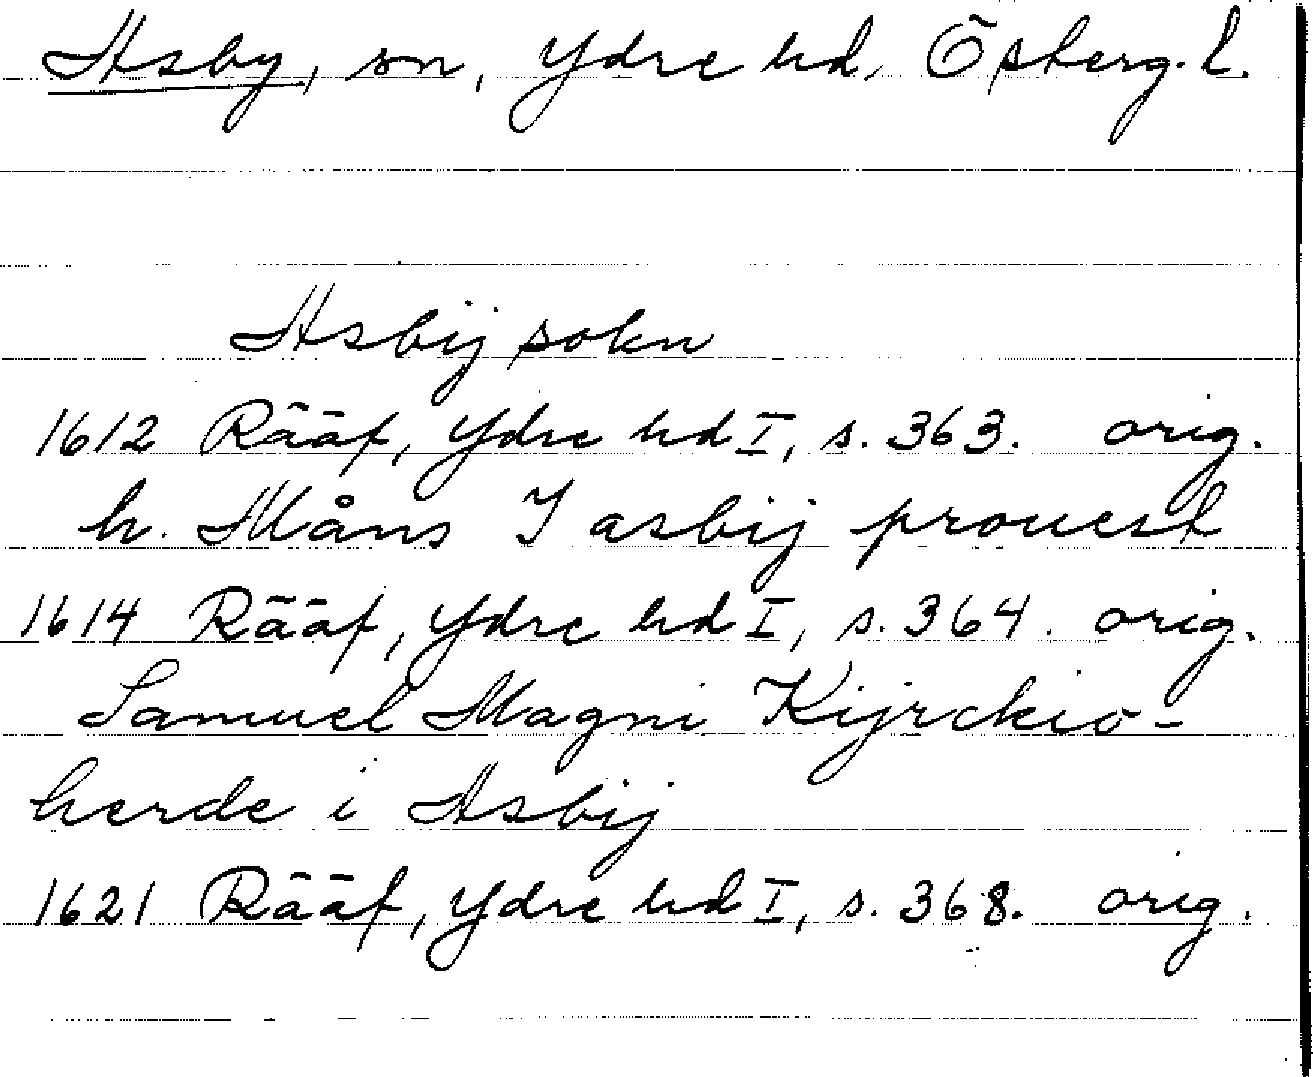 Asby, sn, Ydre hd, Österg. l.
Asbij sokn
1612 Rääf, Ydre hd I, s. 363. orig.
h. Måns I asbij prouest
1614 Rääf, Ydre hd I, s. 364. orig.
Samuel Magni Kijrckio-
herde i Asbij
1621 Rääf, Ydre hd I, s. 368. orig.